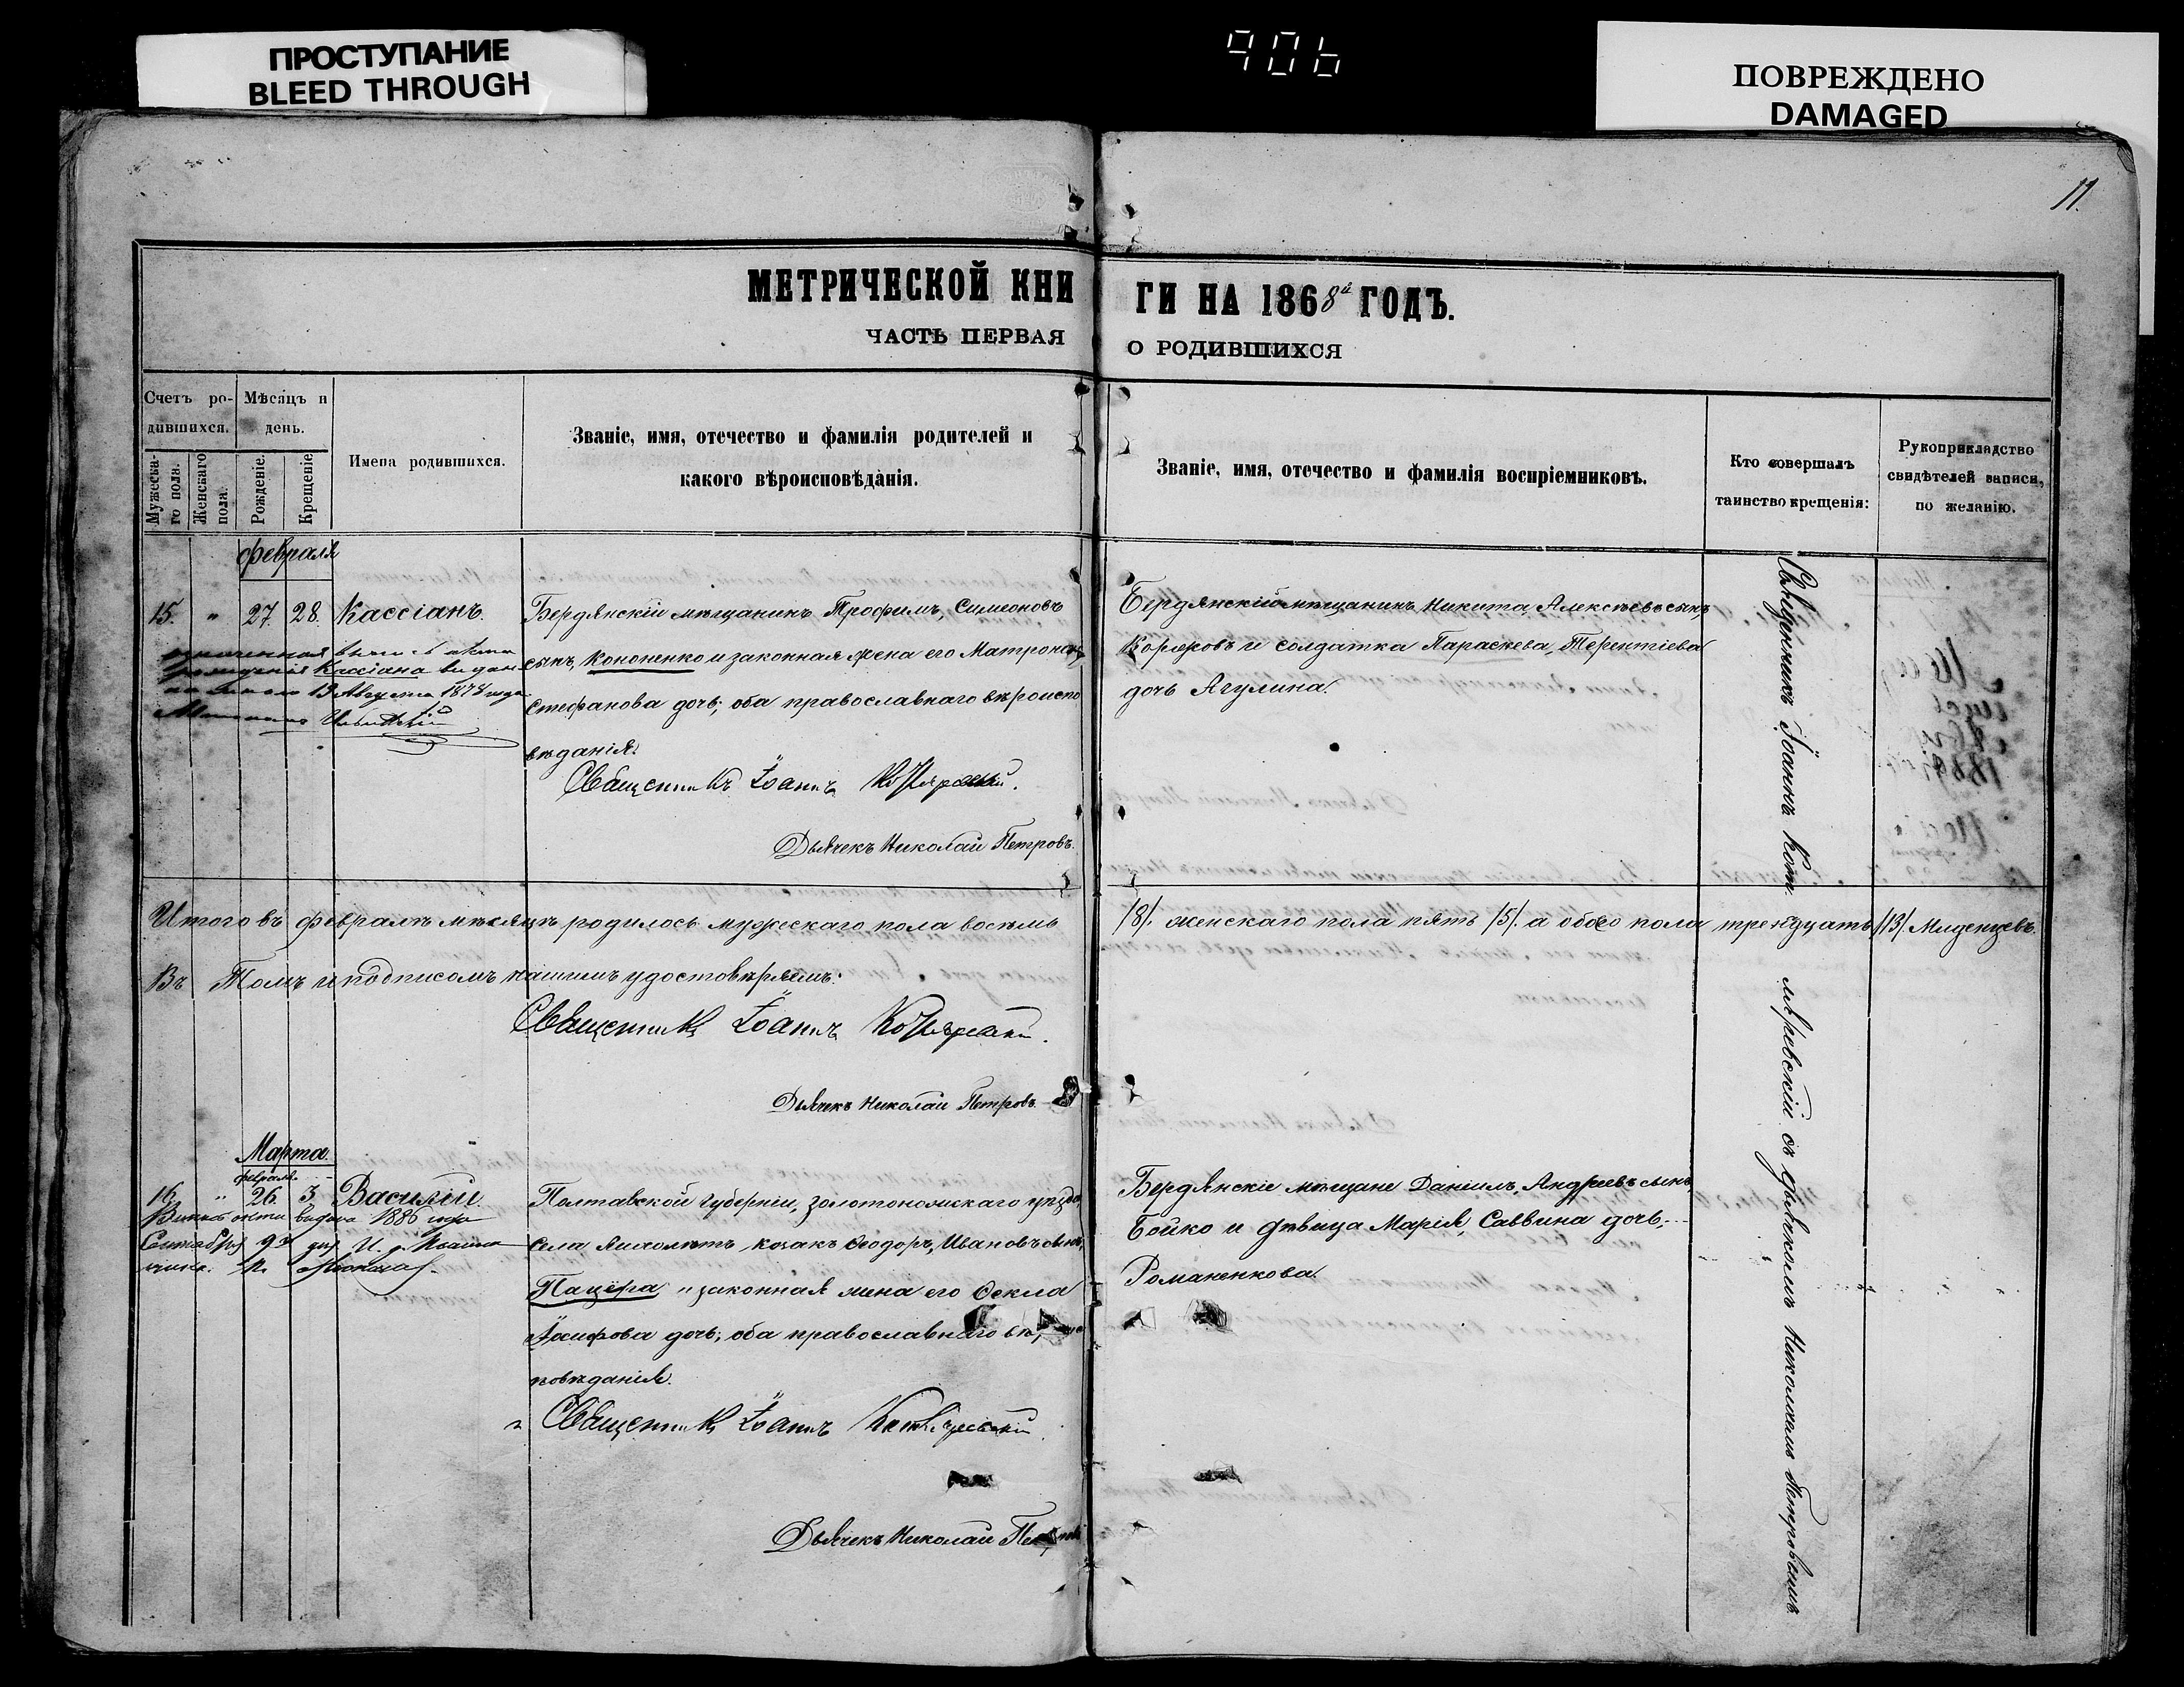 ПРОСТУПАНИЕ
BLEED THROUGH
906
ПОВРЕЖДЕНО
DAMAGED
11.
МЕТРИЧЕСКОЙ КНИ
ГИ НА 1868й ГОДЪ.
ЧАСТЬ ПЕРВАЯ
О РОДИВШИХСЯ
Счетъ ро-
дившихся.
Мужеска-
го пола.
Женскаго
пола.
Мѣсяцъ и
день.
Рожденіе.
Крещеніе
Имена родившихся.
Званіе, имя, отечество и фамилія родителей и
какого вѣроисповѣданія.
Званіе, имя, отечество и фамилія воспріемниковъ.
Кто совершалъ
таинство крещенія:
Рукоприкладство
свидѣтелей записи,
по желанію.
февраля
15. " 27. 28. Кассіанъ.
рожденія Кассіана выдан
13 Августа 1878 года
Бердянскій мѣщанинъ Трофимъ, Симеоновъ
сынъ, Кононенко и законная жена его Матрона,
Стефанова дочь; оба православнаго вѣроиспо
вѣданія.
Священникъ Іоаннъ Котляревскій.
Дьячекъ Николай Петровъ.
Бердянскій мѣщанинъ Никита, Алексѣевъ сынъ,
и солдатка Параскева, Терентіева
дочь Ягулина.
Священникъ Іоаннъ Котляревскій съ дьячкомъ Николаемъ Петровымъ.
Итого въ февралѣ мѣсяцѣ родилось мужескаго пола восемь
/8/. женскаго пола пять /5/. а обоего пола тринадцать /13/. Младенцевъ.
Въ Томъ и подписомъ нашимъ удостовѣряемъ:
Священникъ Іоаннъ Котляревскій.
Дьячекъ Николай Петровъ.
Марта.
февраля
16 " 26. 3. Василій.
выдана 1886 года
Сентября 9го дня
Полтавской губерніи, золотоношскаго уѣзда,
Села козакъ Ѳеодоръ, Ивановъ сынъ,
Пацера и законная жена его Ѳекла
Іосифова дочь; оба православнаго
повѣданія.
Священникъ Іоаннъ Котляревскій.
Дьячекъ Николай
Бердянскіе мѣщане Даніилъ, Андреевъ сынъ,
Бойко и дѣвица Марія, Саввина дочь,
Романенкова.